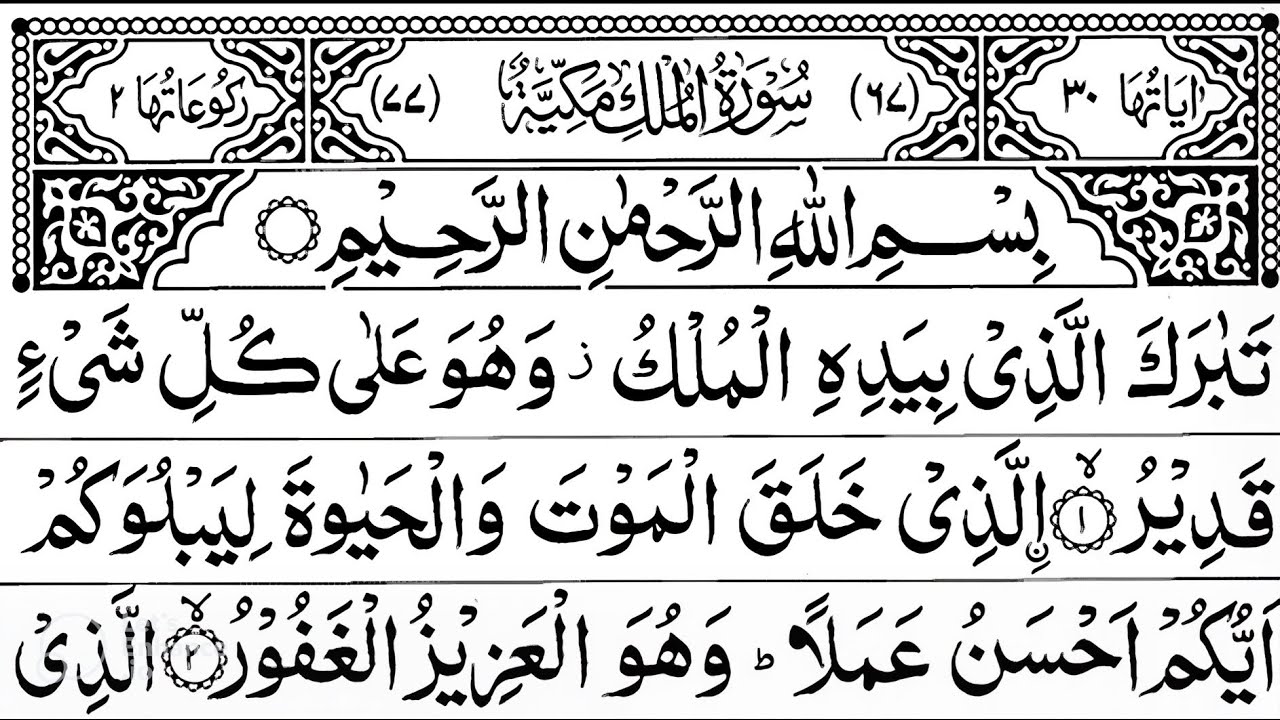 اٰيَاتُهَا ٣٠ (٦٧) سُوْرَةُ الْمُلْكِ مَكِّيَّةٌ (٧٧) رُكُوْعَاتُهَا ٢
بِسْمِ اللهِ الرَّحْمٰنِ الرَّحِيْمِ
تَبٰرَكَ الَّذِىْ بِيَدِهِ الْمُلْكُ ز وَهُوَ عَلٰى كُلِّ شَىْءٍ
قَدِيْرُ ۙ﴿١﴾ اۨلَّذِىْ خَلَقَ الْمَوْتَ وَالْحَيٰوةَ لِيَبْلُوَكُمْ
اَيُّكُمْ اَحْسَنُ عَمَلًا ؕ وَهُوَ الْعَزِيْزُ الْغَفُوْرُ ۙ﴿٢﴾ الَّذِىْ